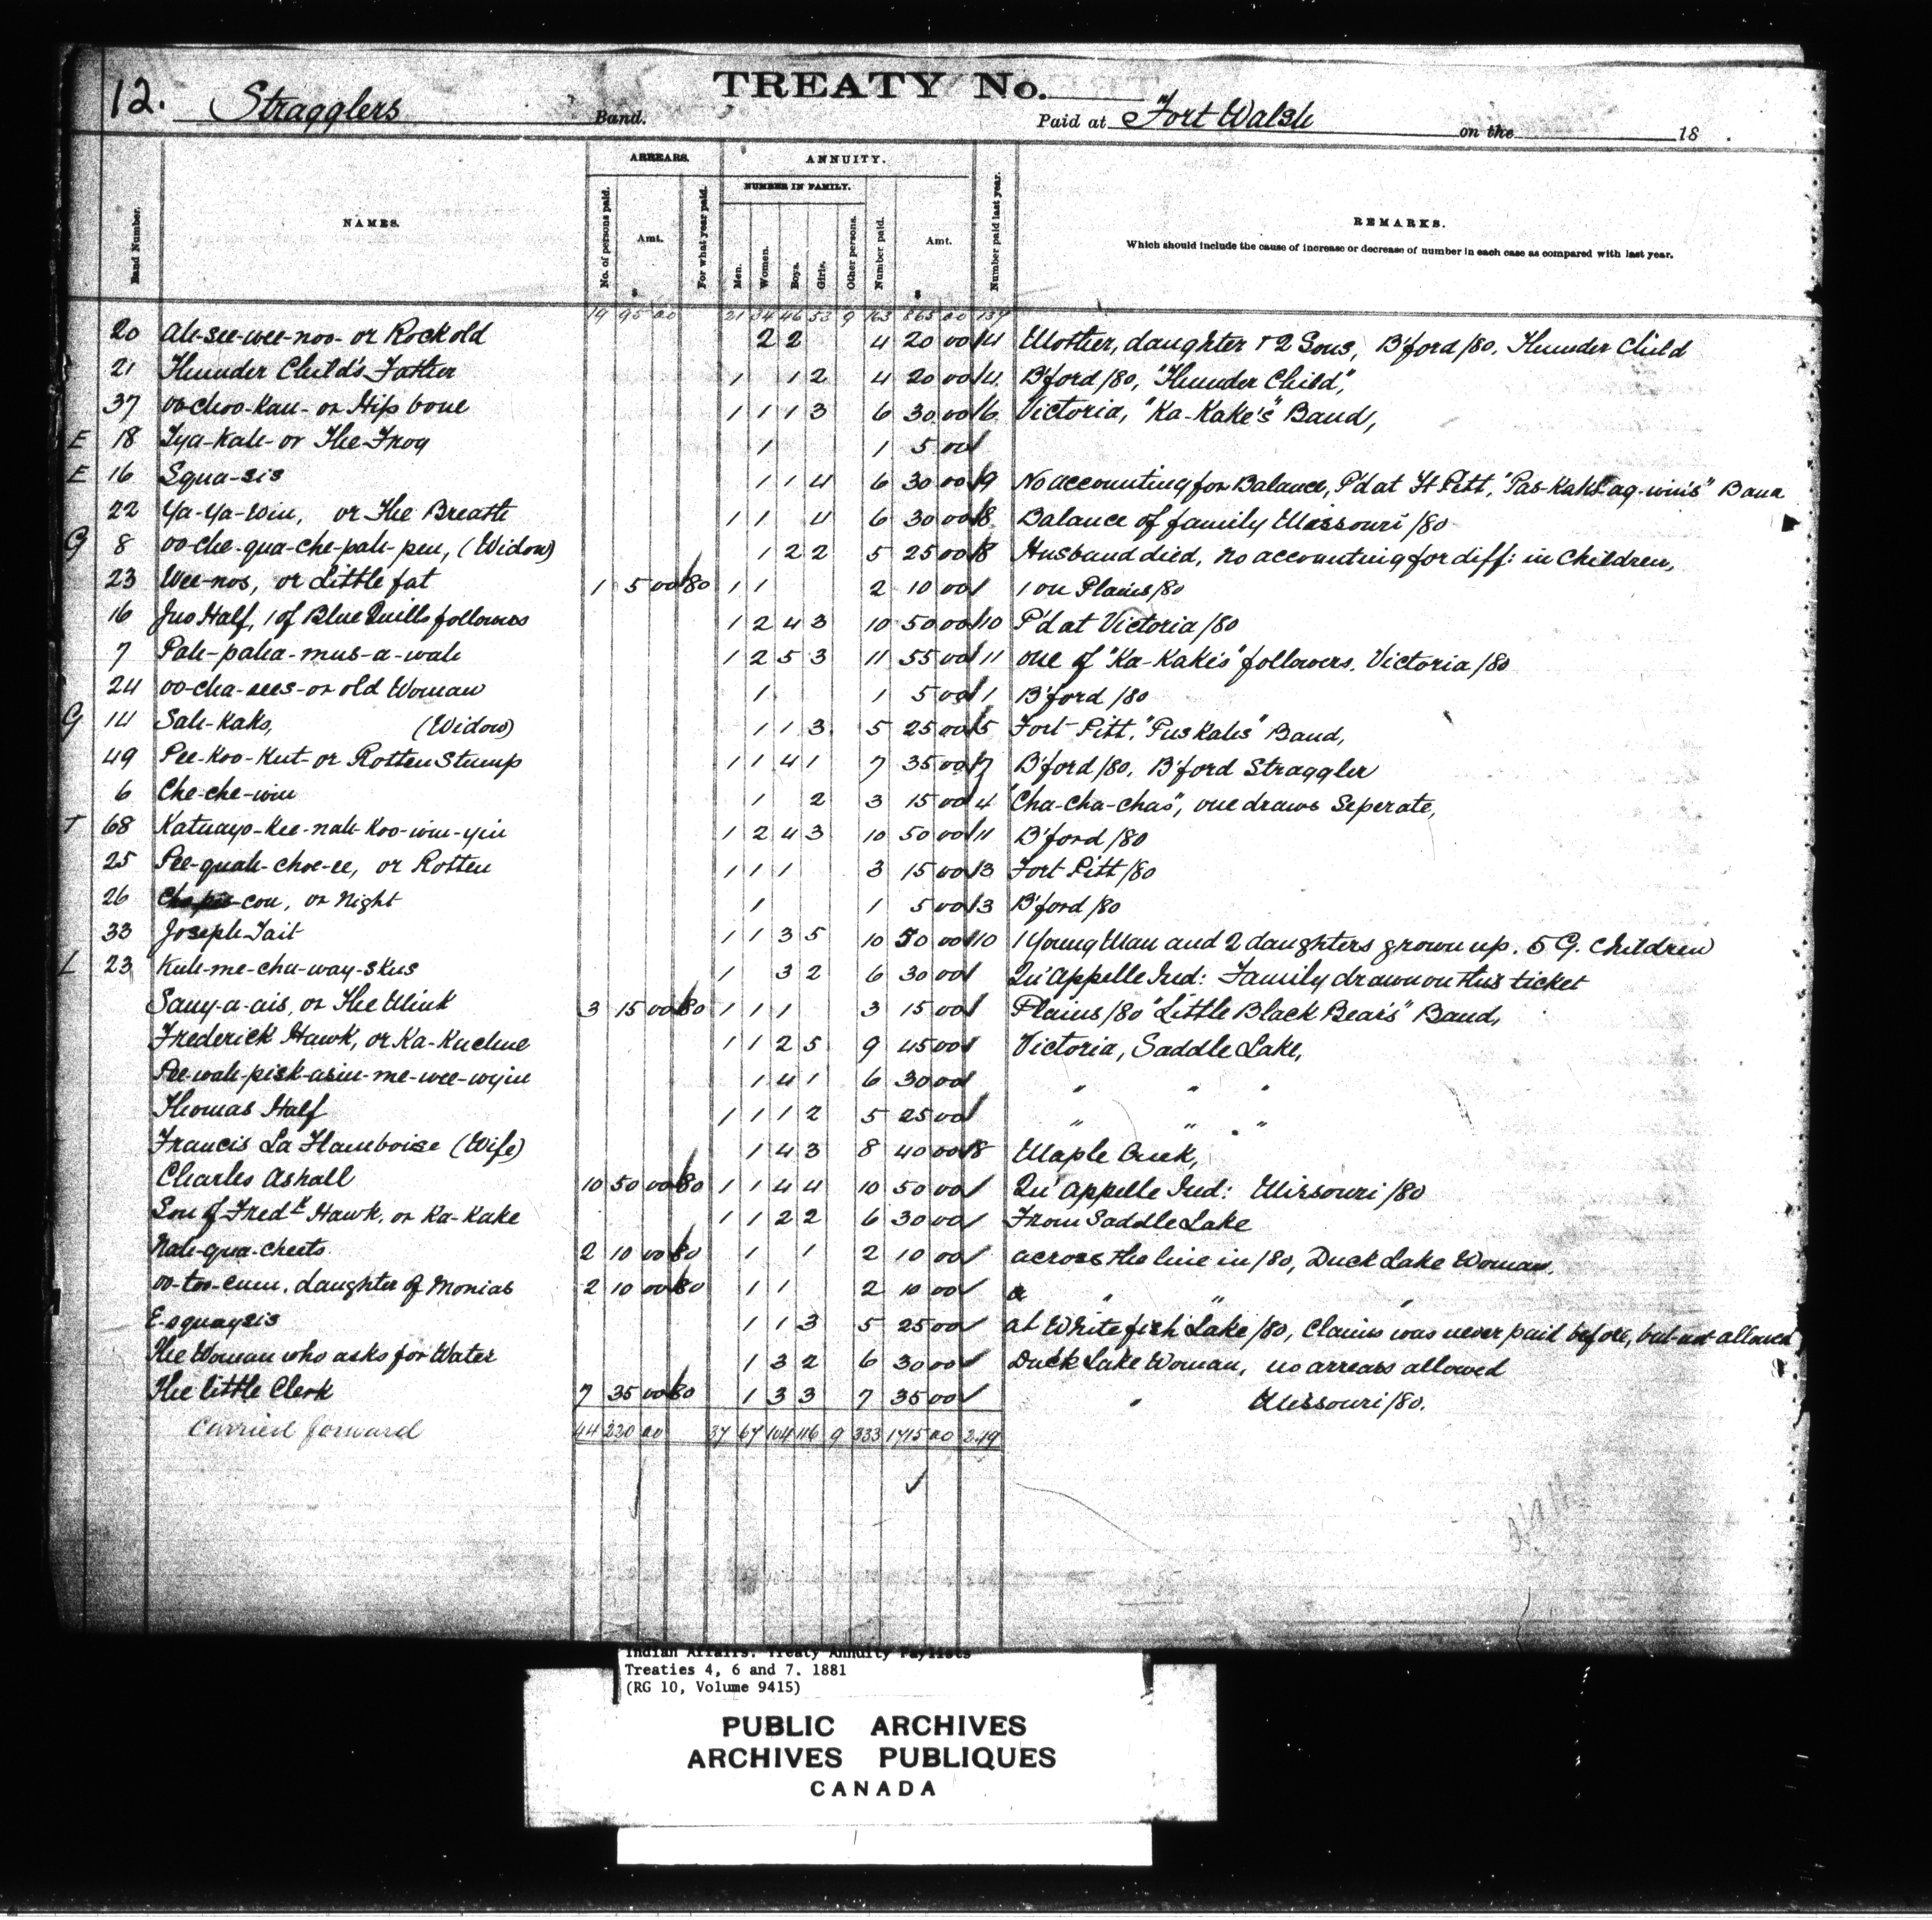 12. Stragglers Band. TREATY No. Paid at Fort Walsh on the 18 .
Band Number. NAMES. ARREARS. No. of persons paid. Amt. $ For what year paid. ANNUITY. NUMBER IN FAMILY. Men. Women. Boys. Girls. Other persons. Number paid. Amt. $ Number paid last year. REMARKS.
Which should include the cause of increase or decrease of number in each case as compared with last year.
19 95 00 21 34 46 53 9 163 865 00 139
20 Ah-see-wee-noo- or Rock old 2 2 4 20 00 4 Mother, daughter & 2 Sons, B'ford /80, Thunder Child
21 Thunder Child's Father 1 1 2 4 20 00 4 B'ford /80, "Thunder Child",
37 oo-choo-kan- or Hip bone 1 1 1 3 6 30 00 6 Victoria, "Ka-Kake's" Band,
E 18 Iya-Kah- or The Frog 1 1 5 00
E 16 Squa-sis 1 1 4 6 30 00 9 No accounting for Balance, P'd at Ft Pitt, Band
22 Ya-Ya-win, or The Breath 1 1 4 6 30 00 8 Balance of family Missouri /80
G 8 oo-che-qua-che-pah-pen, (Widow) 1 2 2 5 25 00 8 Husband died, no accounting for diff: in Children,
23 Wee-nos, or Little fat 1 5 00 80 1 1 2 10 00 1 on Plains /80
16 Jno Half, 1 of Blue Quills followers 1 2 4 3 10 50 00 10 P'd at Victoria /80
7 Pah-paha-mus-a-wah 1 2 5 3 11 55 00 11 one of "Ka-Kake's" followers. Victoria /80
24 oo-cha-sees- or old Woman 1 1 5 00 1 B'ford /80
G 14 Sah-kaks, (Widow) 1 1 3 5 25 00 5 Fort Pitt, "Puskahs" Band,
49 Pee-koo-kut- or Rotten Stump 1 1 4 1 7 35 00 7 B'ford /80, B'ford Straggler
6 Che-che-win 1 2 3 15 00 4 "Cha-cha-chas", one draws Seperate,
T 68 Katuayo-kee-nah-koo-win-yin 1 2 4 3 10 50 00 11 B'ford /80
25 Pee-quah-choe-ee, or Rotten 1 1 1 3 15 00 3 Fort Pitt /80
26 -cou, or Night 1 1 5 00 3 B'ford /80
33 Joseph Tait 1 1 3 5 10 50 00 10 1 Young Man and 2 daughters grown up. 5 G. Children
L 23 Kuh-me-chu-way-skus 1 3 2 6 30 00 Qu'Appelle Ind: Family drawn on this ticket
Sany-a-ais, or The Mink 3 15 00 80 1 1 1 3 15 00 Plains /80 "Little Black Bear's" Band,
Frederick Hawk, or Ka-Kuchue 1 1 2 5 9 45 00 Victoria, Saddle Lake,
Pee-wah-pisk-asin-me-wee-wyin 1 4 1 6 30 00 " " "
Thomas Half 1 1 1 2 5 25 00 " " "
Francis La Flamboise (Wife) 1 4 3 8 40 00 8 Maple Creek,
Charles Ashall 10 50 00 80 1 1 4 4 10 50 00 Qu'Appelle Ind: Missouri /80
Son of Fredk Hawk, or Ka-Kake 1 1 2 2 6 30 00 From Saddle Lake
Nah-qua-cheets 2 10 00 80 1 1 2 10 00 across the line in /80, Duck Lake Woman.
oo-too-cum, daughter of Monias 2 10 00 80 1 1 2 10 00 " " "
E-squaysis 1 1 3 5 25 00 at Whitefish Lake /80, Claims was never paid before, but not allowed
The Woman who asks for Water 1 3 2 6 30 00 Duck Lake Woman, no arrears allowed
The little Clerk 7 35 00 80 1 3 3 7 35 00 " Missouri /80.
Carried forward 44 220 00 37 67 104 116 9 333 1715 00 249
Indian Affairs. Treaty Annuity Paylists
Treaties 4, 6 and 7. 1881
(RG 10, Volume 9415)
PUBLIC ARCHIVES
ARCHIVES PUBLIQUES
CANADA